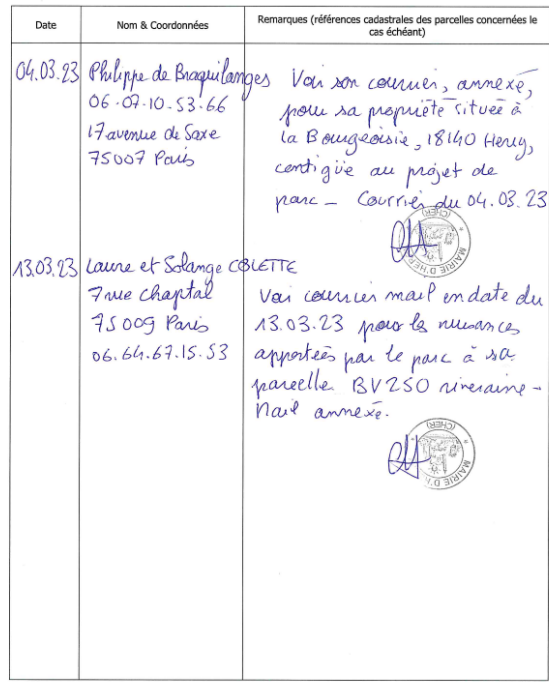 Date
Nom & Coordonnées
Remarques (références cadastrales des parcelles concernées le
cas échéant)
04.03.23
Philippe de Braquilanges
06.07.10.53.66
17 avenue de Saxe
75007 Paris
Voir son courrier, annexé,
pour sa propriété située à
la Bourgeoisie, 18140 Herry,
contigüe au projet de
parc - Courrier du 04.03.23
(CHER)
MAIRIE D'HER
13.03.23
Laure et Solange COLETTE
7 rue Chaptal
75009 Paris
06.64.67.15.53
Voir courrier mail en date du
13.03.23 pour les nuisances
apportées par le parc à sa
parcelle BV250 riveraine -
Mail annexé.
(CHER)
MAIRIE D'H